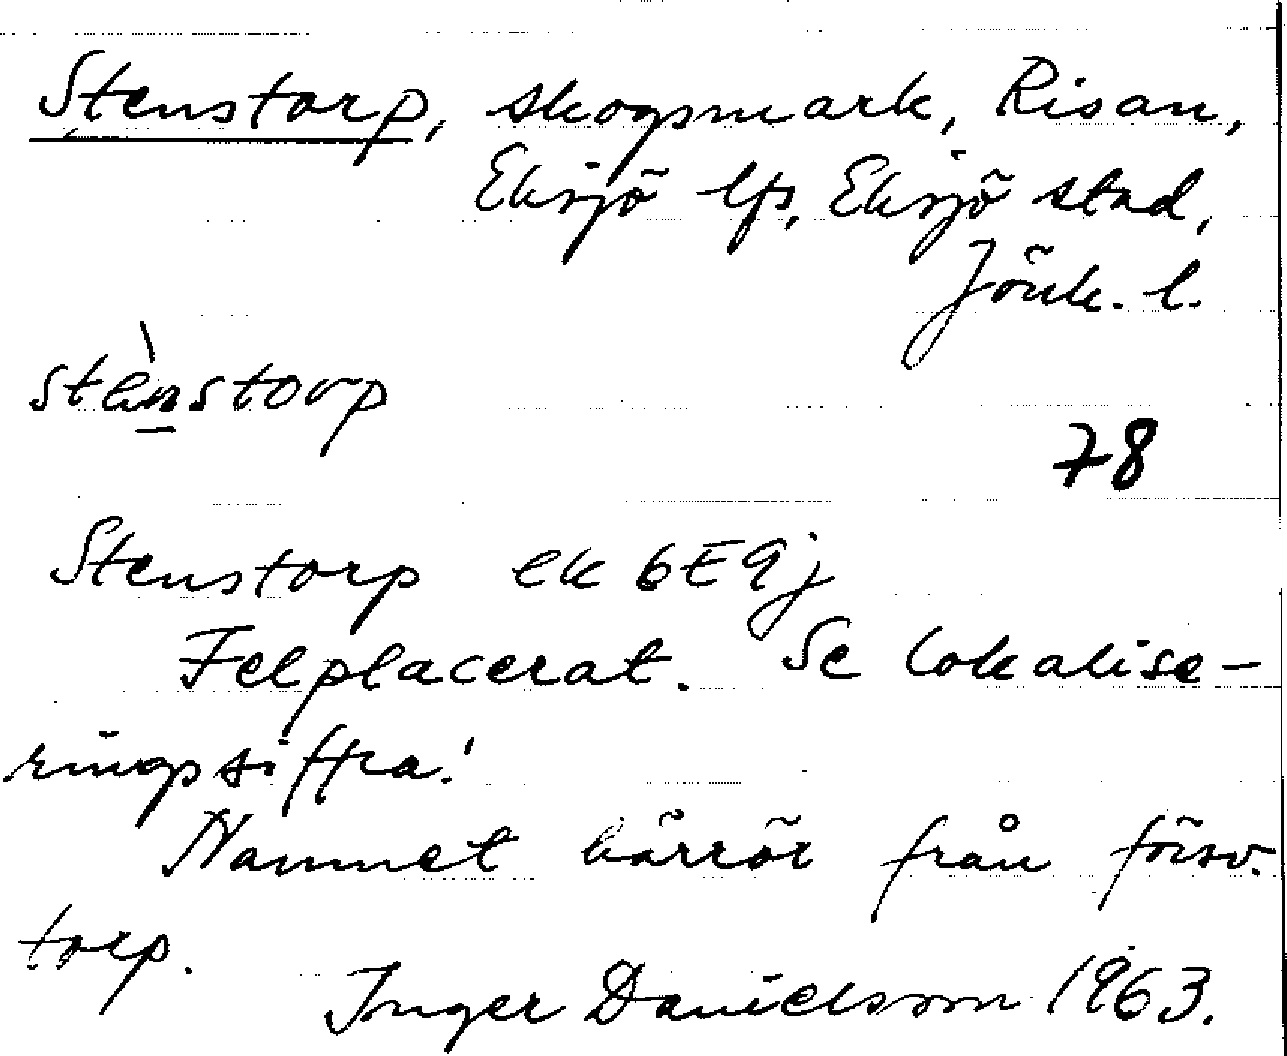 Stenstorp, skogsmark, Risan,
Eksjö lfs, Eksjö stad,
Jönk. l.
stènstorp
78
Stenstorp ek 6E9j
Felplacerat. Se lokalise-
ringssiffra!
Namnet härrör från försv.
torp.
Inger Danielsson 1963.